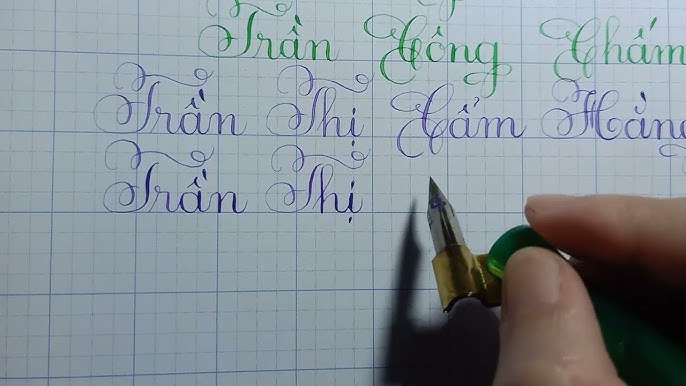 Trần Công
Trần Thị Cẩm Hằng
Trần Thị